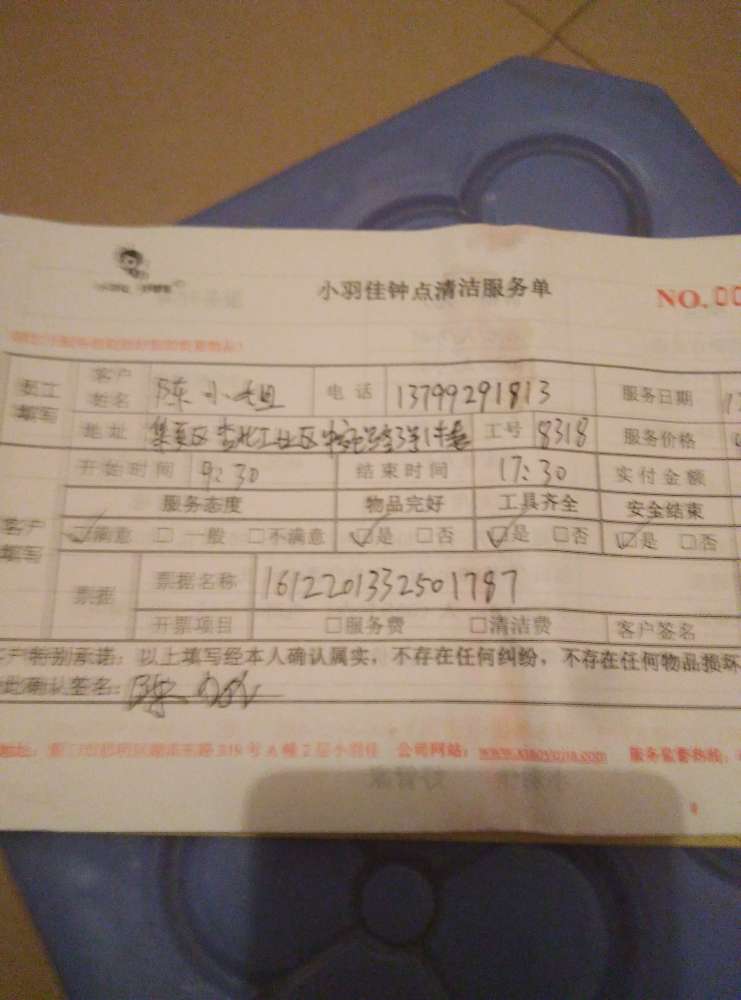 小羽佳钟点清洁服务单
NO. 00
员工填写
客户姓名 陈小姐 电话 13799291813 服务日期
地址 集美区 工号 8318 服务价格
客户填写
开始时间 9:30 结束时间 17:30 实付金额
服务态度 物品完好 工具齐全 安全结束
☑满意 □一般 □不满意 ☑是 □否 ☑是 □否 ☑是 □否
票据 票据名称 1612201332501787
开票项目 □服务费 □清洁费 客户签名
客户特别承诺：以上填写经本人确认属实，不存在任何纠纷，不存在任何物品损坏
此确认签名：
地址： 319号A幢2层小羽佳 公司网站：www.xiaoyujia.com 服务监督热线：